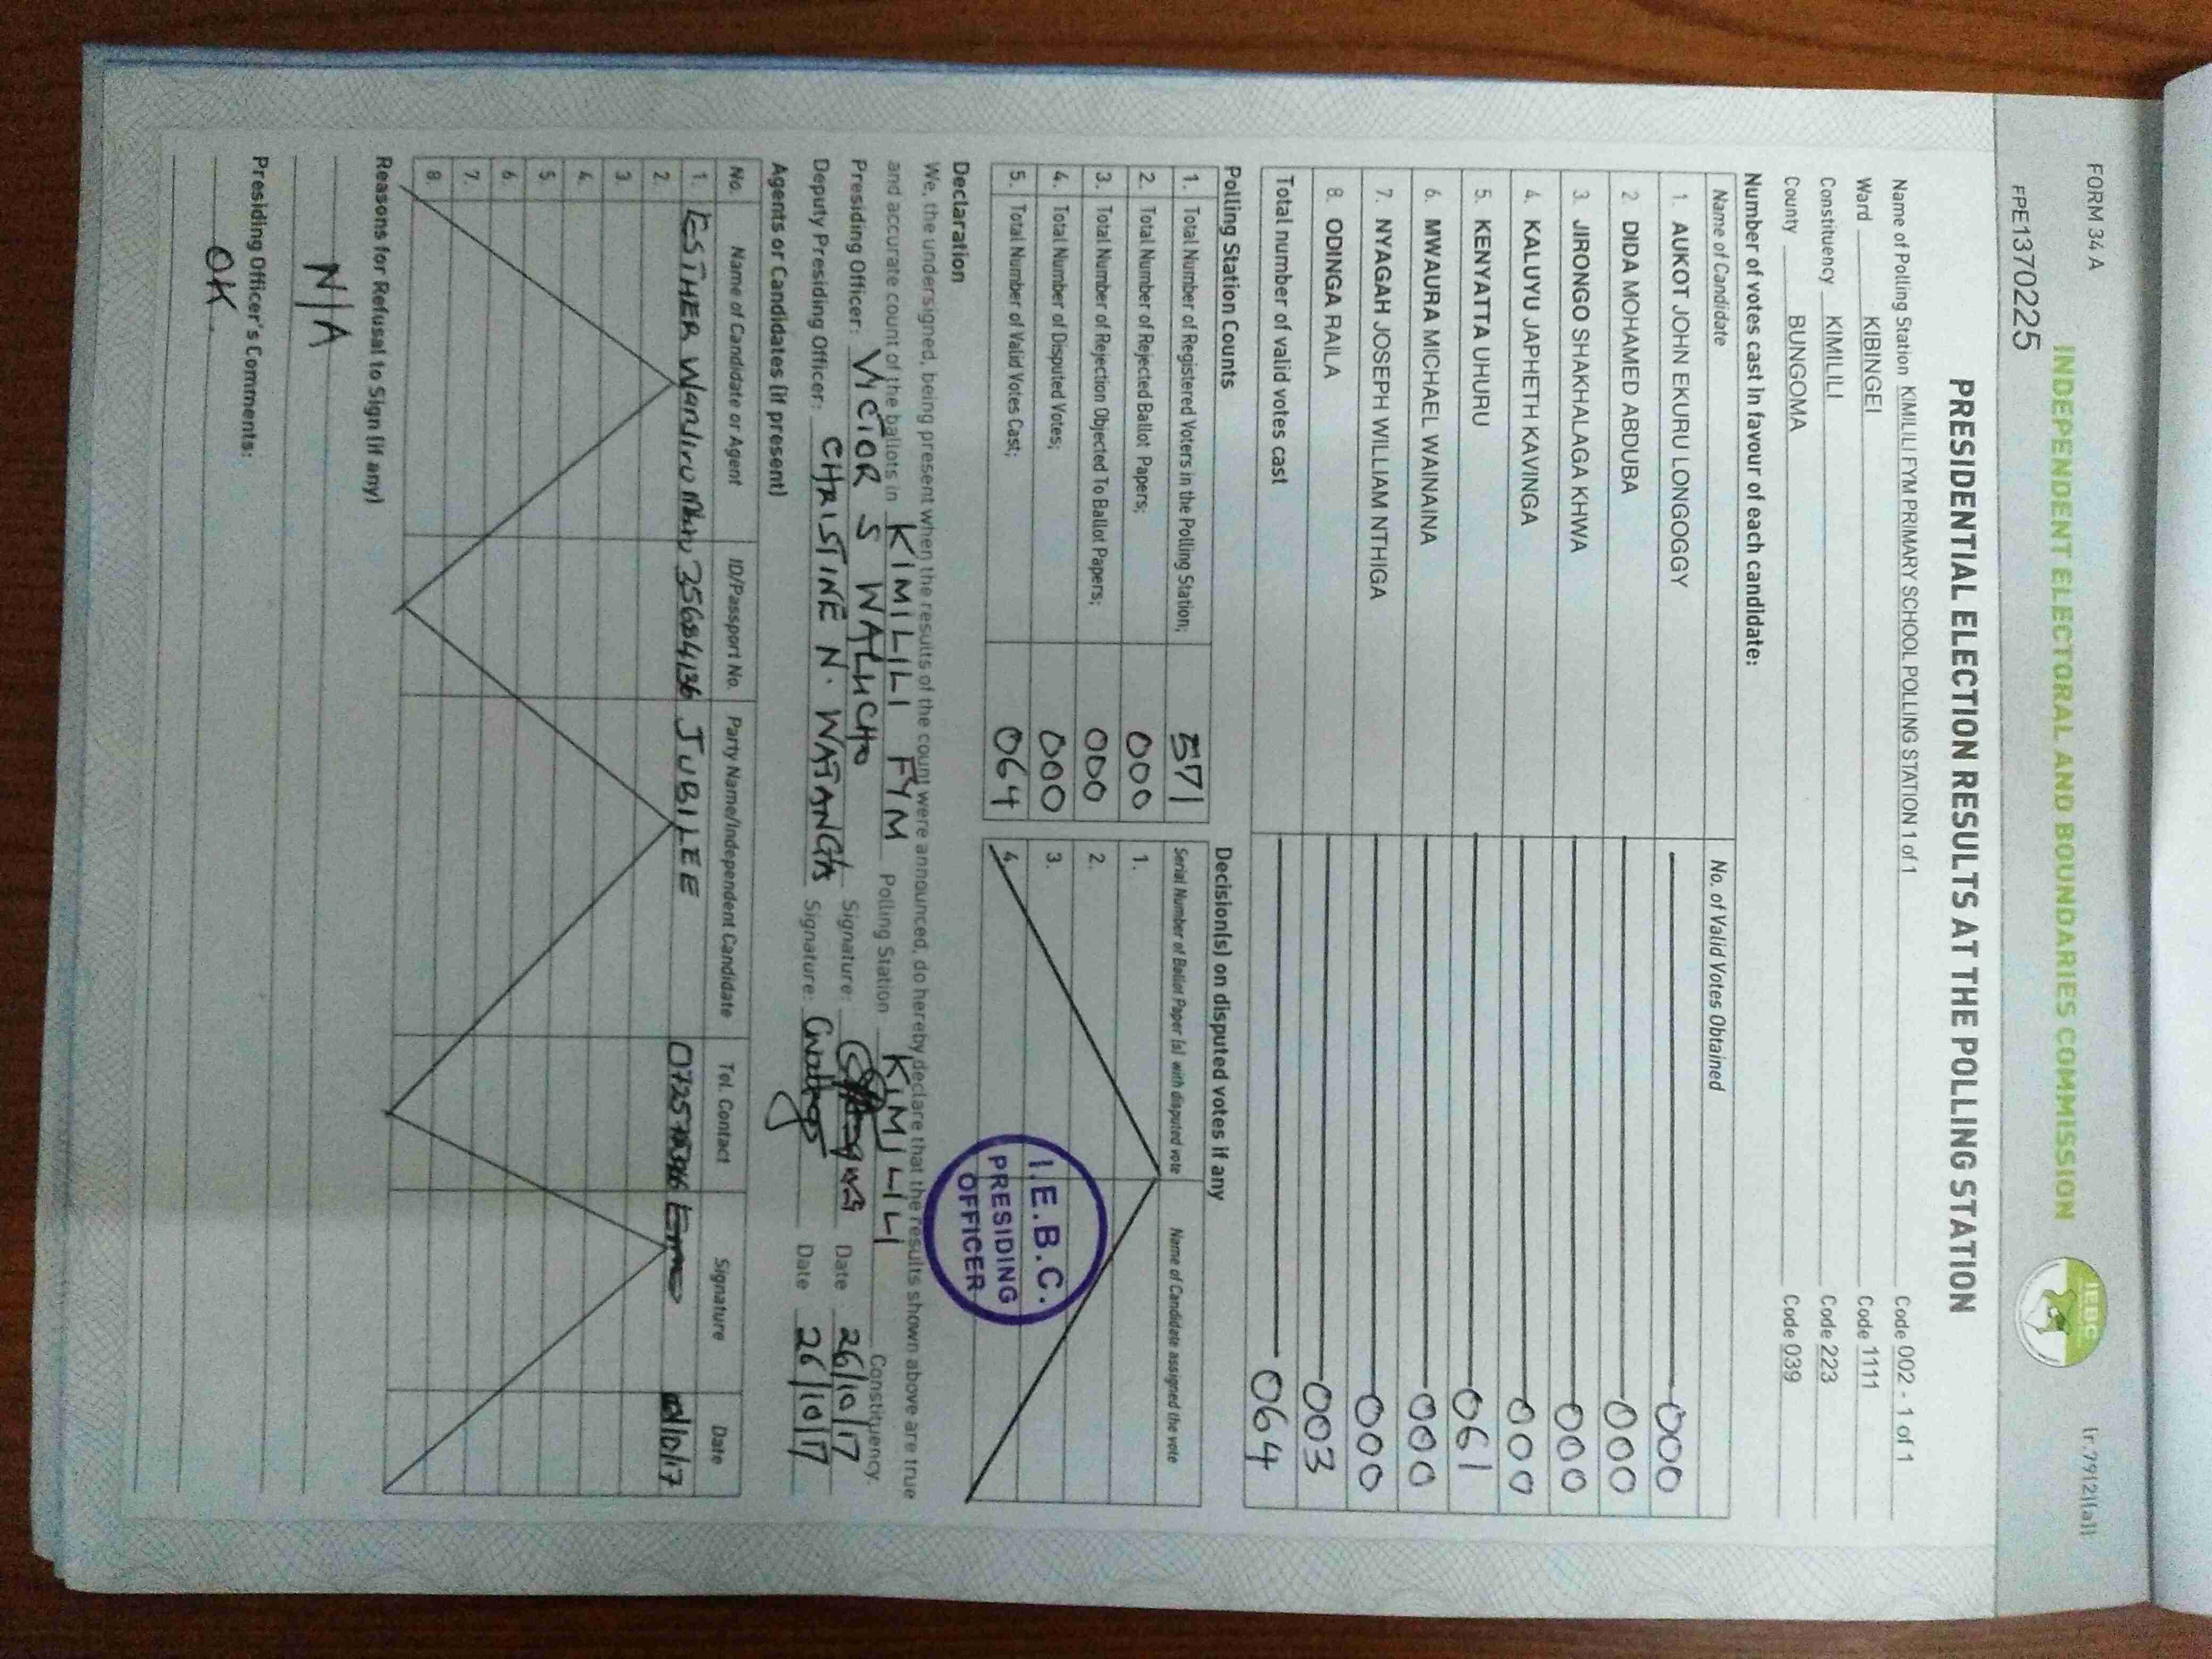 FORM 34 A
(r.79(2)(a))
INDEPENDENT ELECTORAL AND BOUNDARIES COMMISSION
IEBC
FPE1370225
PRESIDENTIAL ELECTION RESULTS AT THE POLLING STATION
Name of Polling Station KIMILILI FYM PRIMARY SCHOOL POLLING STATION 1 of 1 Code 002 - 1 of 1
Ward KIBINGEI Code 1111
Constituency KIMILILI Code 223
County BUNGOMA Code 039
Number of votes cast in favour of each candidate:
Name of Candidate No. of Valid Votes Obtained
1. AUKOT JOHN EKURU LONGOGGY 000
2 DIDA MOHAMED ABDUBA 000
3. JIRONGO SHAKHALAGA KHWA 000
4. KALUYU JAPHETH KAVINGA 000
5. KENYATTA UHURU 061
6. MWAURA MICHAEL WAINAINA 000
7. NYAGAH JOSEPH WILLIAM NTHIGA 000
8. ODINGA RAILA 003
Total number of valid votes cast 064
Polling Station Counts
1. Total Number of Registered Voters in the Polling Station; 571
2. Total Number of Rejected Ballot Papers; 000
3. Total Number of Rejection Objected To Ballot Papers; 000
4. Total Number of Disputed Votes; 000
5. Total Number of Valid Votes Cast; 064
Decision(s) on disputed votes if any
Serial Number of Ballot Paper (s) with disputed vote Name of Candidate assigned the vote
1.
2.
3.
4.
I.E.B.C.
PRESIDING
OFFICER
Declaration
We, the undersigned, being present when the results of the count were announced, do hereby declare that the results shown above are true
and accurate count of the ballots in KIMILILI FYM Polling Station KIMILILI Constituency.
Presiding Officer: VICTOR S Signature: Date 26/10/17
Deputy Presiding Officer: CHRISTINE N. WATANGA Signature: Date 26/10/17
Agents or Candidates (if present)
No. Name of Candidate or Agent ID/Passport No. Party Name/Independent Candidate Tel. Contact Signature Date
1. ESTHER JUBILEE
2.
3.
4.
5.
6.
7.
8.
Reasons for Refusal to Sign (if any)
N/A
Presiding Officer's Comments:
OK